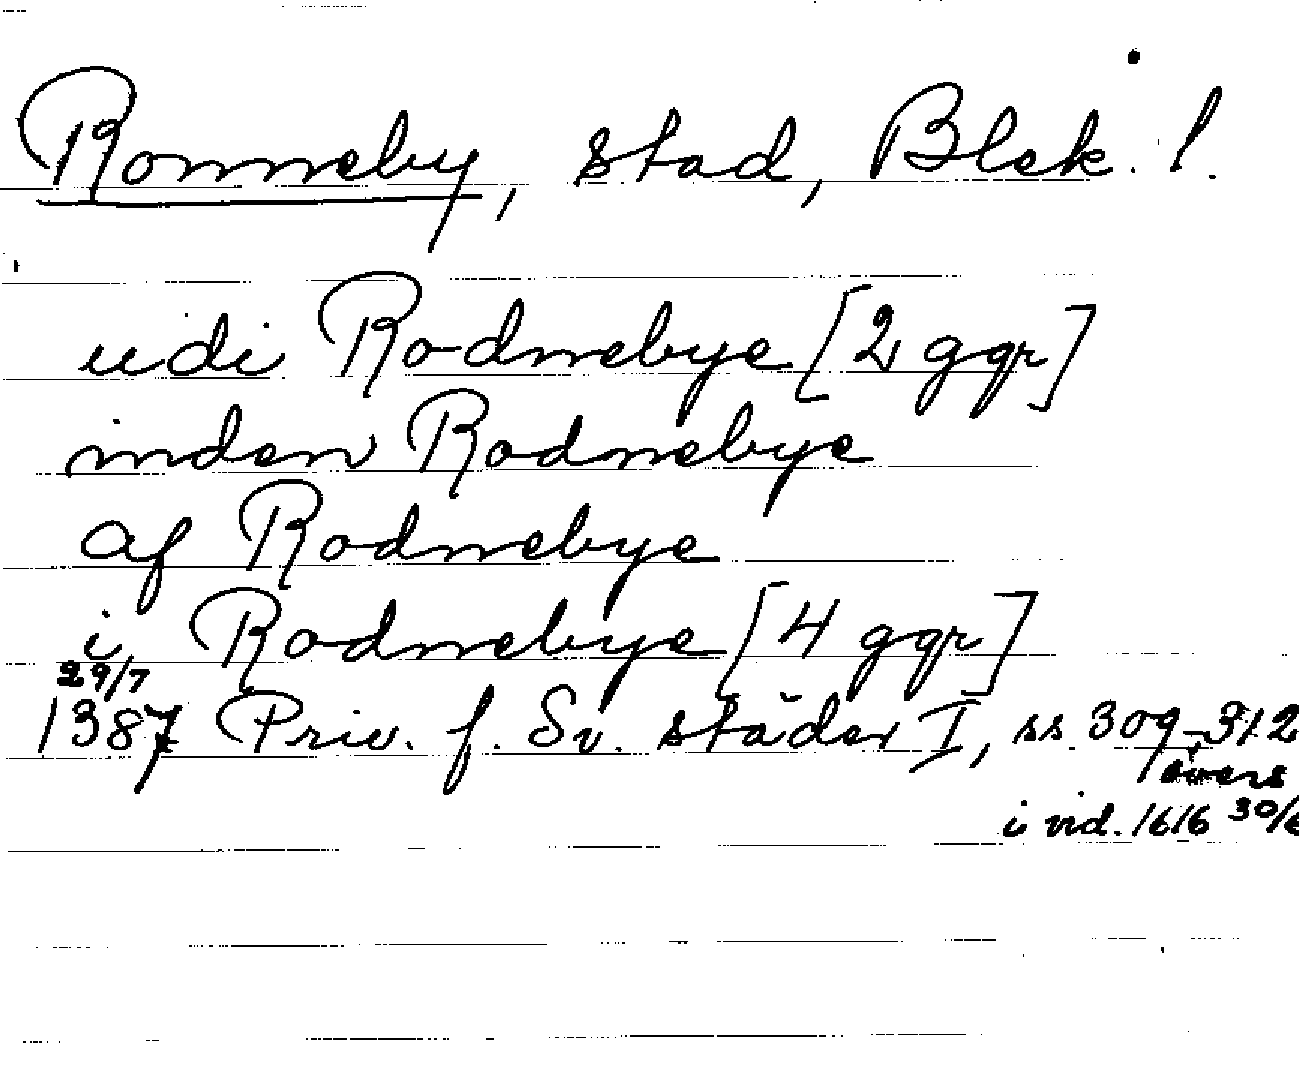 Ronneby, stad, Blek. l.
udi Rodnebye [2 ggr]
inden Rodnebye
af Rodnebye
i Rodnebye [4 ggr]
29/7
1387 Priv. f. Sv. städer I, ss. 309-312
övers
i vid. 1616 30/6